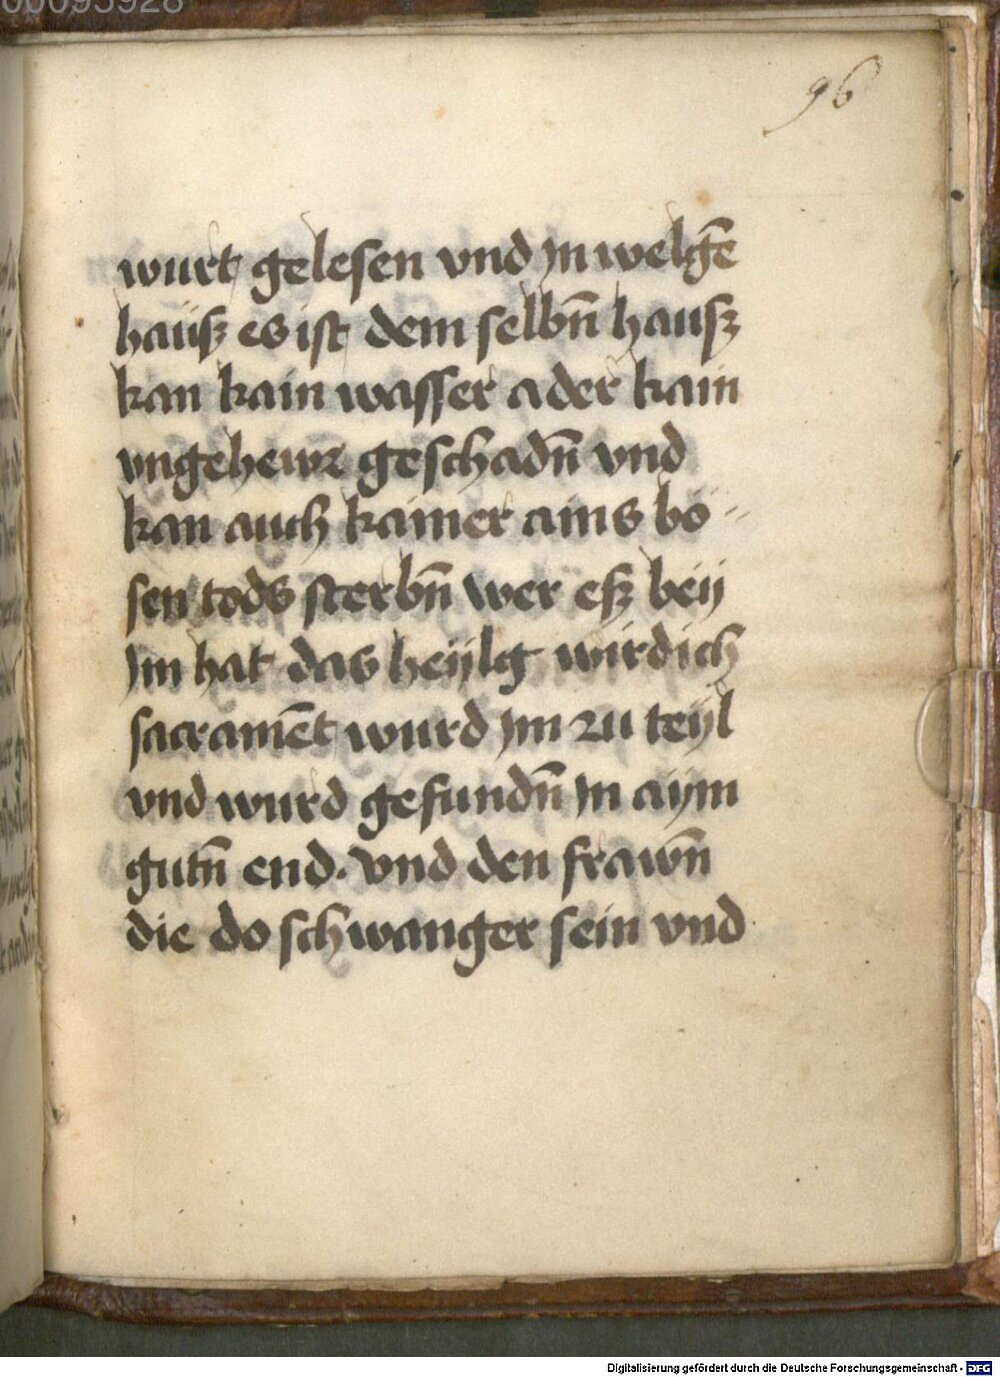 96
wurt gelesen vnd jn welgē
haüß es ist dem selbn̄ hauß
kan kain wasser ader kain
vngehewr geschadn̄ vnd
kan auch kainer ains bö=
sen tods sterbn̄ wer eß beÿ
jm hat das heÿlg wirdich
sacramēt wurd jm zu teÿl
vnd wurd gefundn̄ jn aÿm
gutn̄ end. vnd den frawn̄
die do schwanger sein vnd
Digitalisierung gefördert durch die Deutsche Forschungsgemeinschaft - DFG